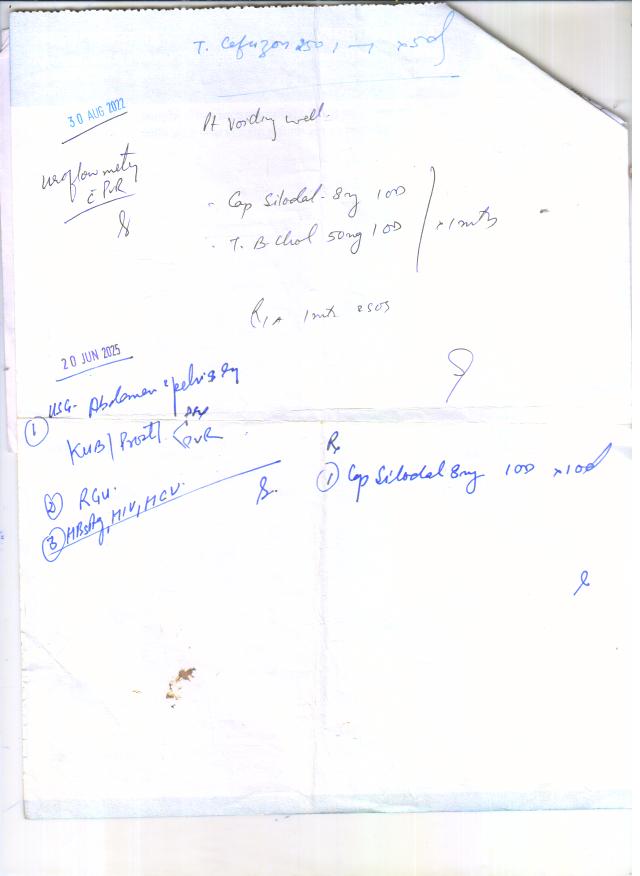 T. Cefuzon 250 1 — 1 x 5d
30 AUG 2022
Pt voiding well.
uroflowmetry
c̄ PVR
- Cap Silodal - 8mg 1OD
- T. B-Chol 50mg 1OD
x 1 mth
R/A 1 mth SOS
20 JUN 2025
① USG - Abdomen & pelvis
KUB/Prost PVR
② RGU.
③ HBsAg, HIV, HCV.
Rx
① Cap Silodal 8mg 1OD x 10d